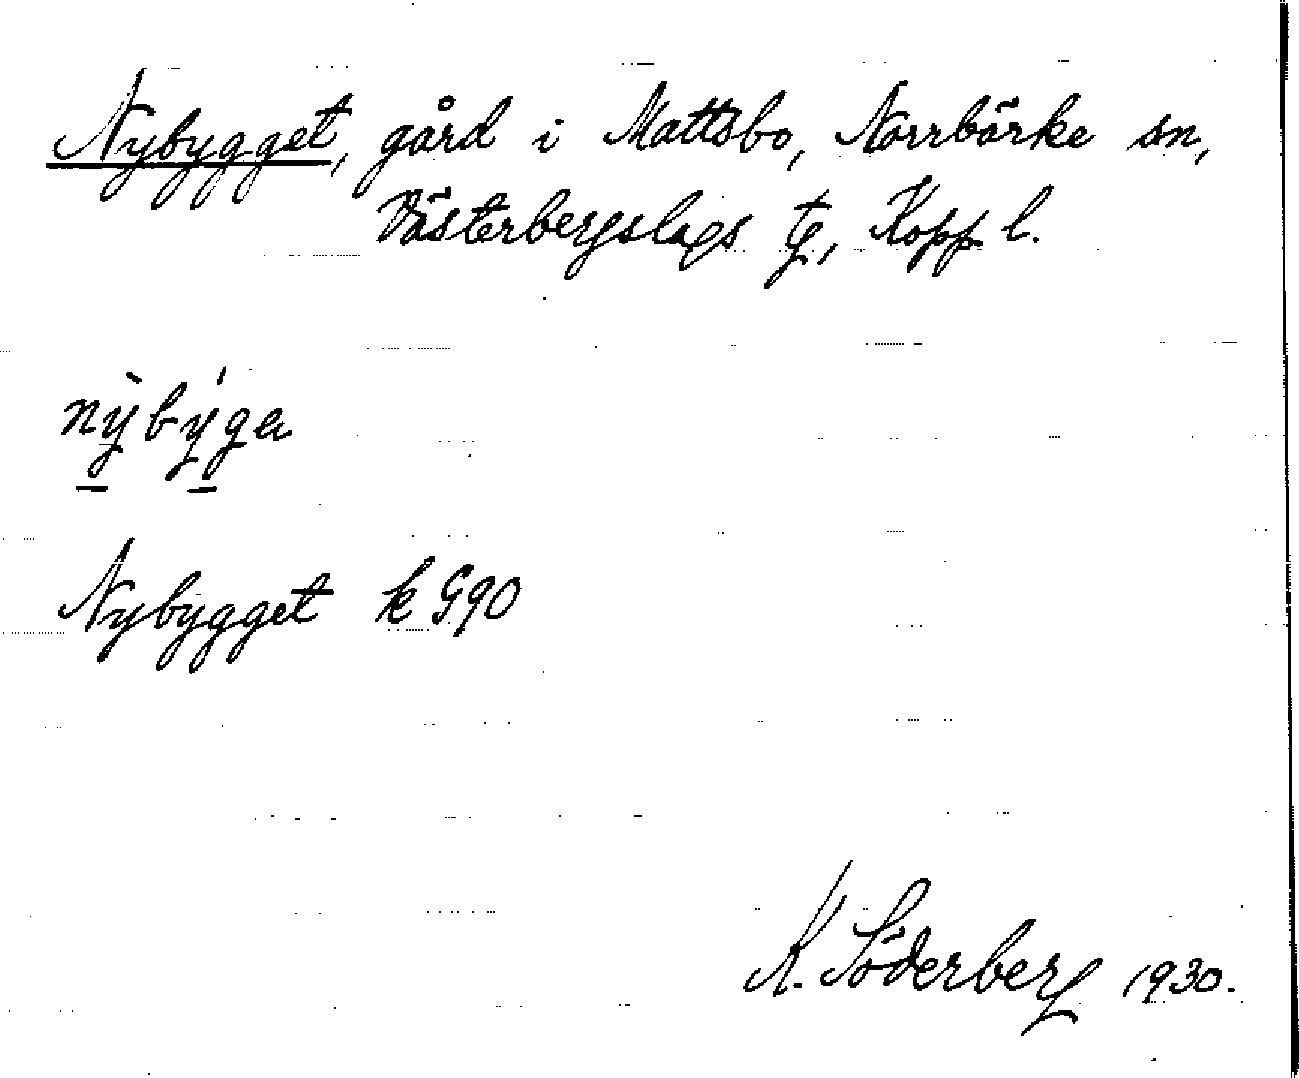 Nybygget, gård i Mattsbo, Norrbärke sn,
Västerbergslags tg, Kopp. l.
nỳbýga
Nybygget k G90
K. Söderberg 1930.